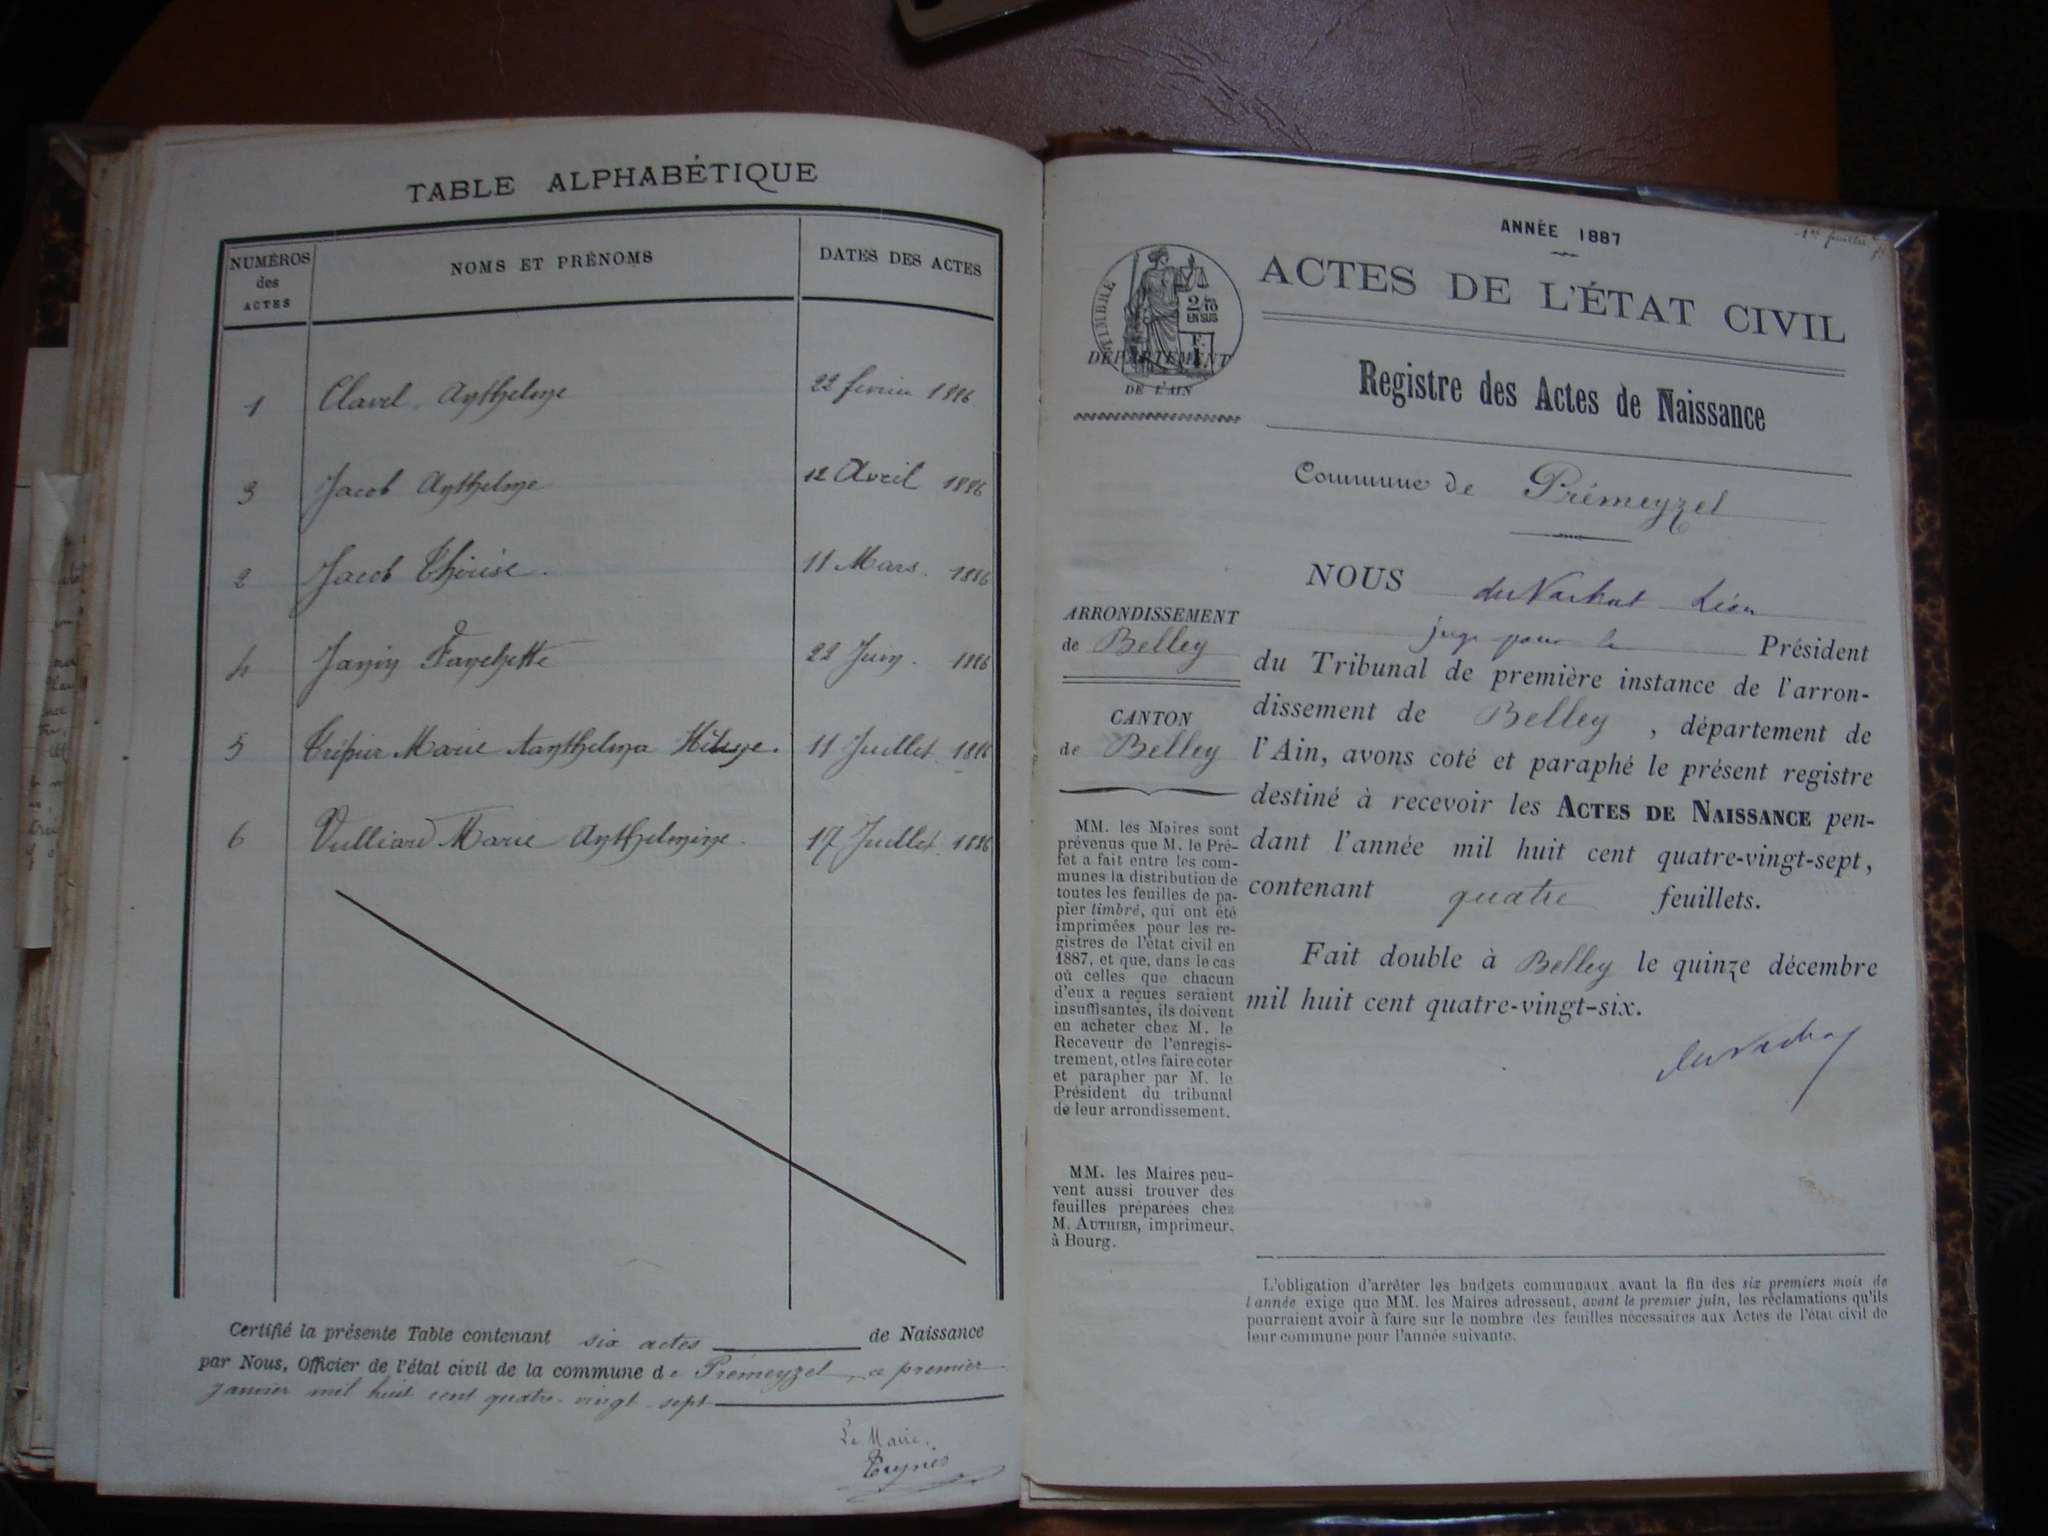 TABLE ALPHABÉTIQUE
NUMÉROS des ACTES
NOMS ET PRÉNOMS
DATES DES ACTES
1 Clavel Anthelme 22 février 1886
3 Jacob Anthelme 12 Avril 1886
2 Jacob Thérèse. 11 Mars. 1886
4 Janin Fanchette 22 Juin. 1886
5 Trépier Marie Aanthelma 11 Juillet 1886
6 Vulliard Marie Anthelmine. 17 Juillet 1886
Certifié la présente Table contenant six actes de Naissance
par Nous, Officier de l'état civil de la commune de Prémeyzel, ce premier
janvier mil huit cent quatre-vingt-sept
Le Maire,
1er feuillet
ANNÉE 1887
ACTES DE L'ÉTAT CIVIL
TIMBRE
2/10
EN SUS
F.
DÉPARTEMENT
DE L'AIN
Registre des Actes de Naissance
Commune de Prémeyzel
NOUS Léon
juge pour le Président
du Tribunal de première instance de l'arron-
dissement de Belley, département de
l'Ain, avons coté et paraphé le présent registre
destiné à recevoir les ACTES DE NAISSANCE pen-
dant l'année mil huit cent quatre-vingt-sept,
contenant quatre feuillets.
Fait double à Belley le quinze décembre
mil huit cent quatre-vingt-six.
ARRONDISSEMENT
de Belley
CANTON
de Belley
MM. les Maires sont
prévenus que M. le Pré-
fet a fait entre les com-
munes la distribution de
toutes les feuilles de pa-
pier timbré, qui ont été
imprimées pour les re-
gistres de l'état civil en
1887, et que, dans le cas
où celles que chacun
d'eux a reçues seraient
insuffisantes, ils doivent
en acheter chez M. le
Receveur de l'enregis-
trement, et les faire coter
et parapher par M. le
Président du tribunal
de leur arrondissement.
MM. les Maires peu-
vent aussi trouver des
feuilles préparées chez
M. AUTHIER, imprimeur,
à Bourg.
L'obligation d'arrêter les budgets communaux avant la fin des six premiers mois de
l'année exige que MM. les Maires adressent, avant le premier juin, les réclamations qu'ils
pourraient avoir à faire sur le nombre des feuilles nécessaires aux Actes de l'état civil de
leur commune pour l'année suivante.